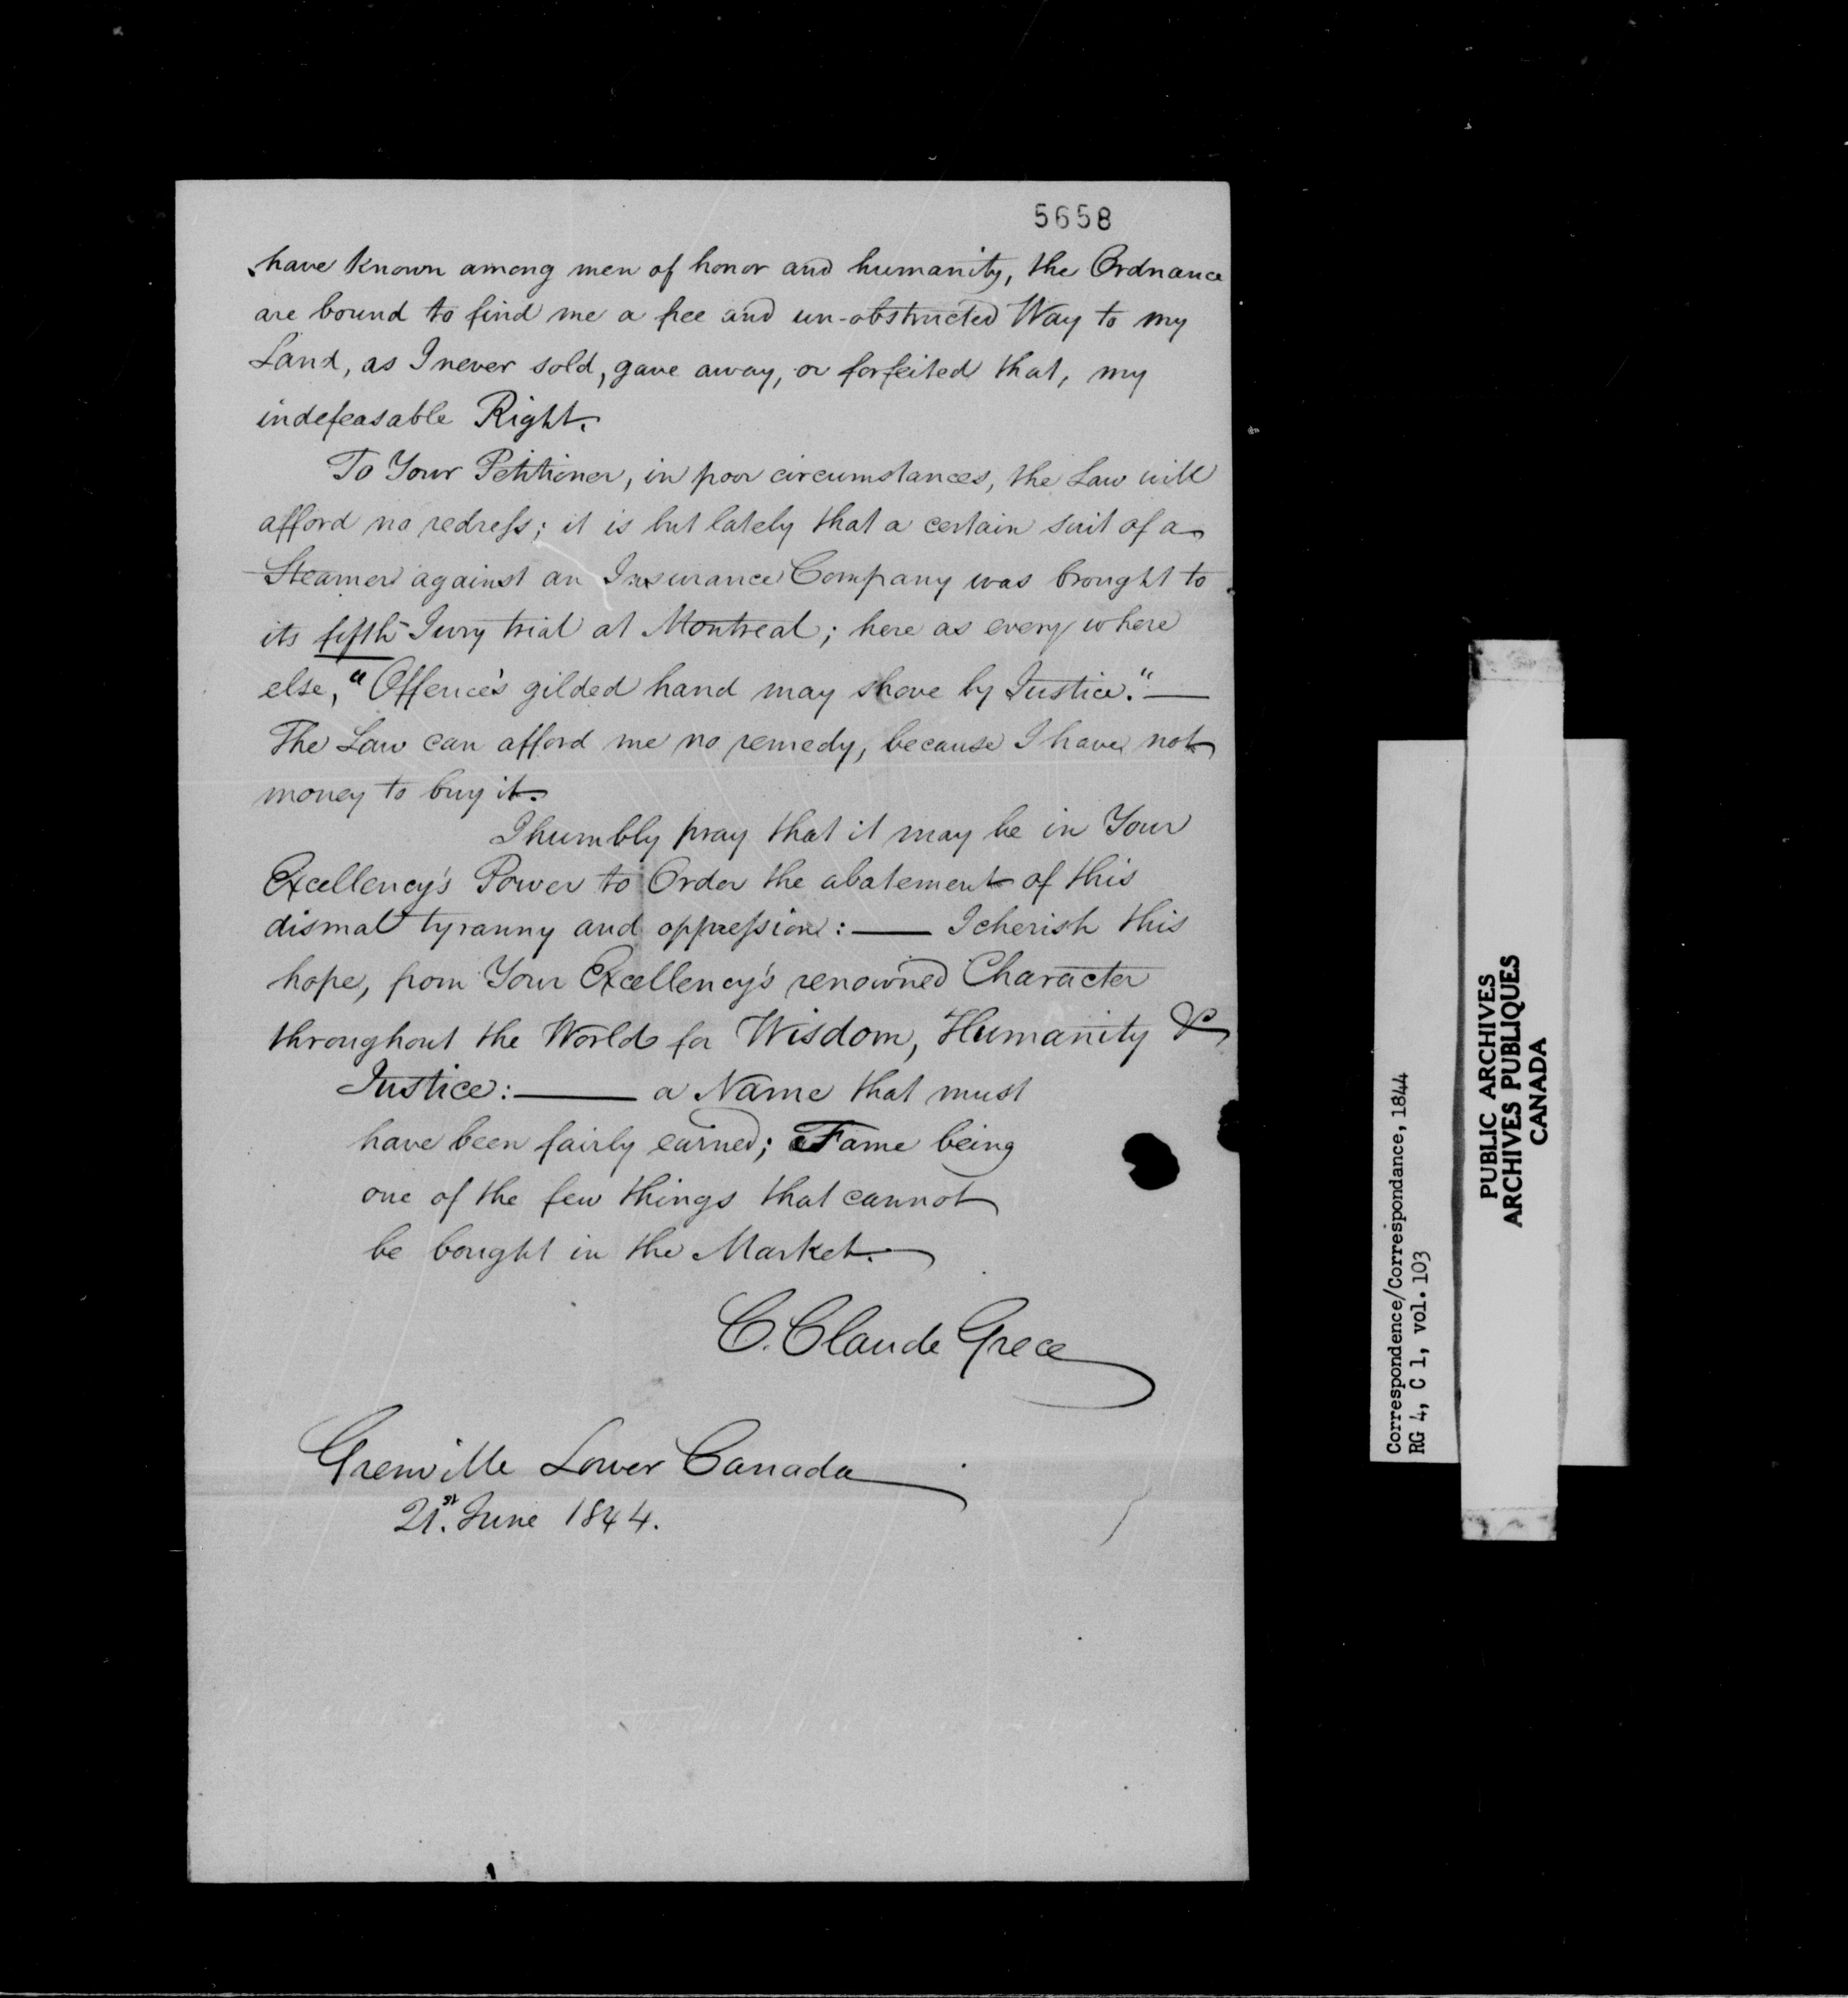 5658
have known among men of honor and humanity, the Ordnance
are bound to find me a free and un-obstructed Way to my
Land, as I never sold, gave away, or forfeited that, my
indefeasable Right.
To Your Petitioner, in poor circumstances, the Law will
afford no redress; it is but lately that a certain suit of a
Steamer against an Insurance Company was brought to
its fifth Jury trial at Montreal; here as every where
else, "Offence's gilded hand may shove by Justice." —
The Law can afford me no remedy, because I have not
money to buy it.
I humbly pray that it may be in Your
Excellency's Power to Order the abatement of this
dismal tyranny and oppression: — I cherish this
hope, from Your Excellency's renowned Character
throughout the World for Wisdom, Humanity &
Justice: — a Name that must
have been fairly earned; Fame being
one of the few things that cannot
be bought in the Market.
C. Claude Grece
Grenville Lower Canada
21.st June 1844.
Correspondence/Correspondance, 1844
RG 4, C 1, vol. 103
PUBLIC ARCHIVES
ARCHIVES PUBLIQUES
CANADA